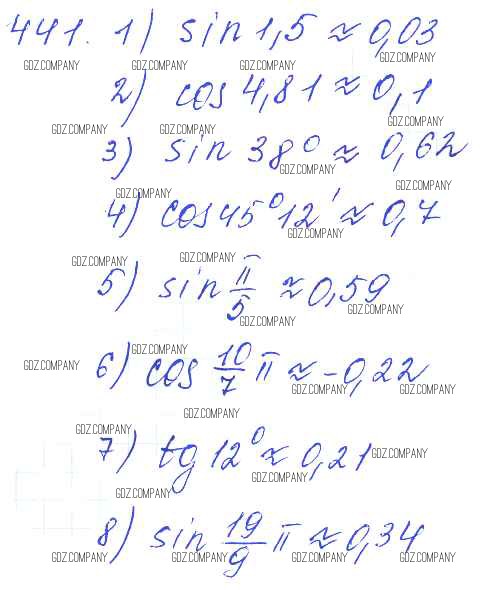 441. 1) sin 1,5 ≈ 0,03
GDZ.COMPANY GDZ.COMPANY GDZ.COMPANY GDZ.COMPANY
2) cos 4,81 ≈ 0,1
GDZ.COMPANY GDZ.COMPANY GDZ.COMPANY
3) sin 38° ≈ 0,62
GDZ.COMPANY GDZ.COMPANY GDZ.COMPANY
4) cos 45°12' ≈ 0,7
GDZ.COMPANY GDZ.COMPANY GDZ.COMPANY
5) sin π/5 ≈ 0,59
GDZ.COMPANY GDZ.COMPANY
GDZ.COMPANY GDZ.COMPANY
6) cos 10/7 π ≈ -0,22
GDZ.COMPANY GDZ.COMPANY GDZ.COMPANY
GDZ.COMPANY GDZ.COMPANY
7) tg 12° ≈ 0,21
GDZ.COMPANY GDZ.COMPANY GDZ.COMPANY
8) sin 19/9 π ≈ 0,34
GDZ.COMPANY GDZ.COMPANY GDZ.COMPANY GDZ.COMPANY